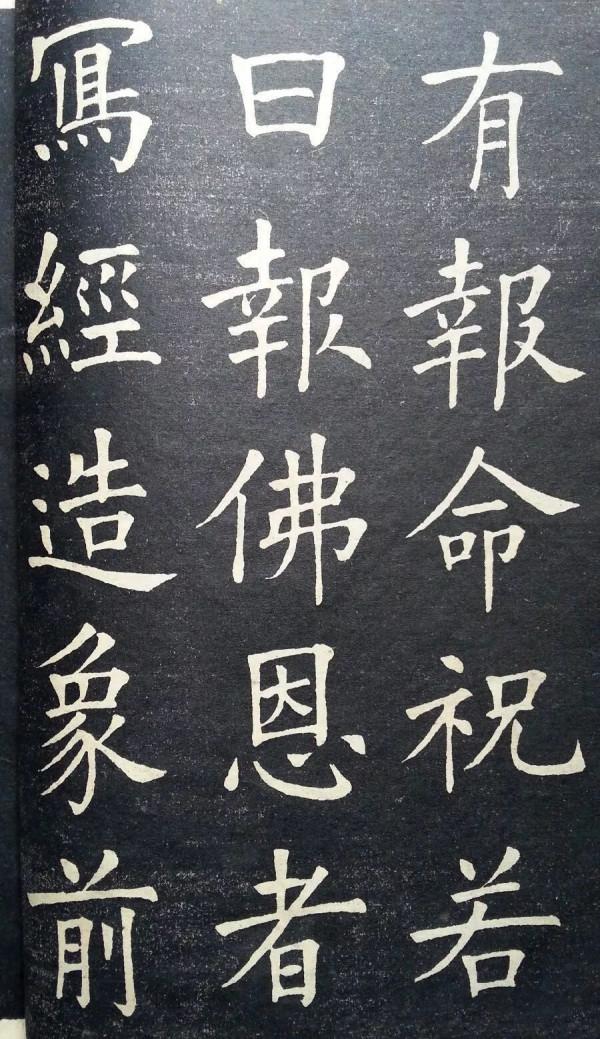 有報命祝若
曰報佛恩者
寫經造象前